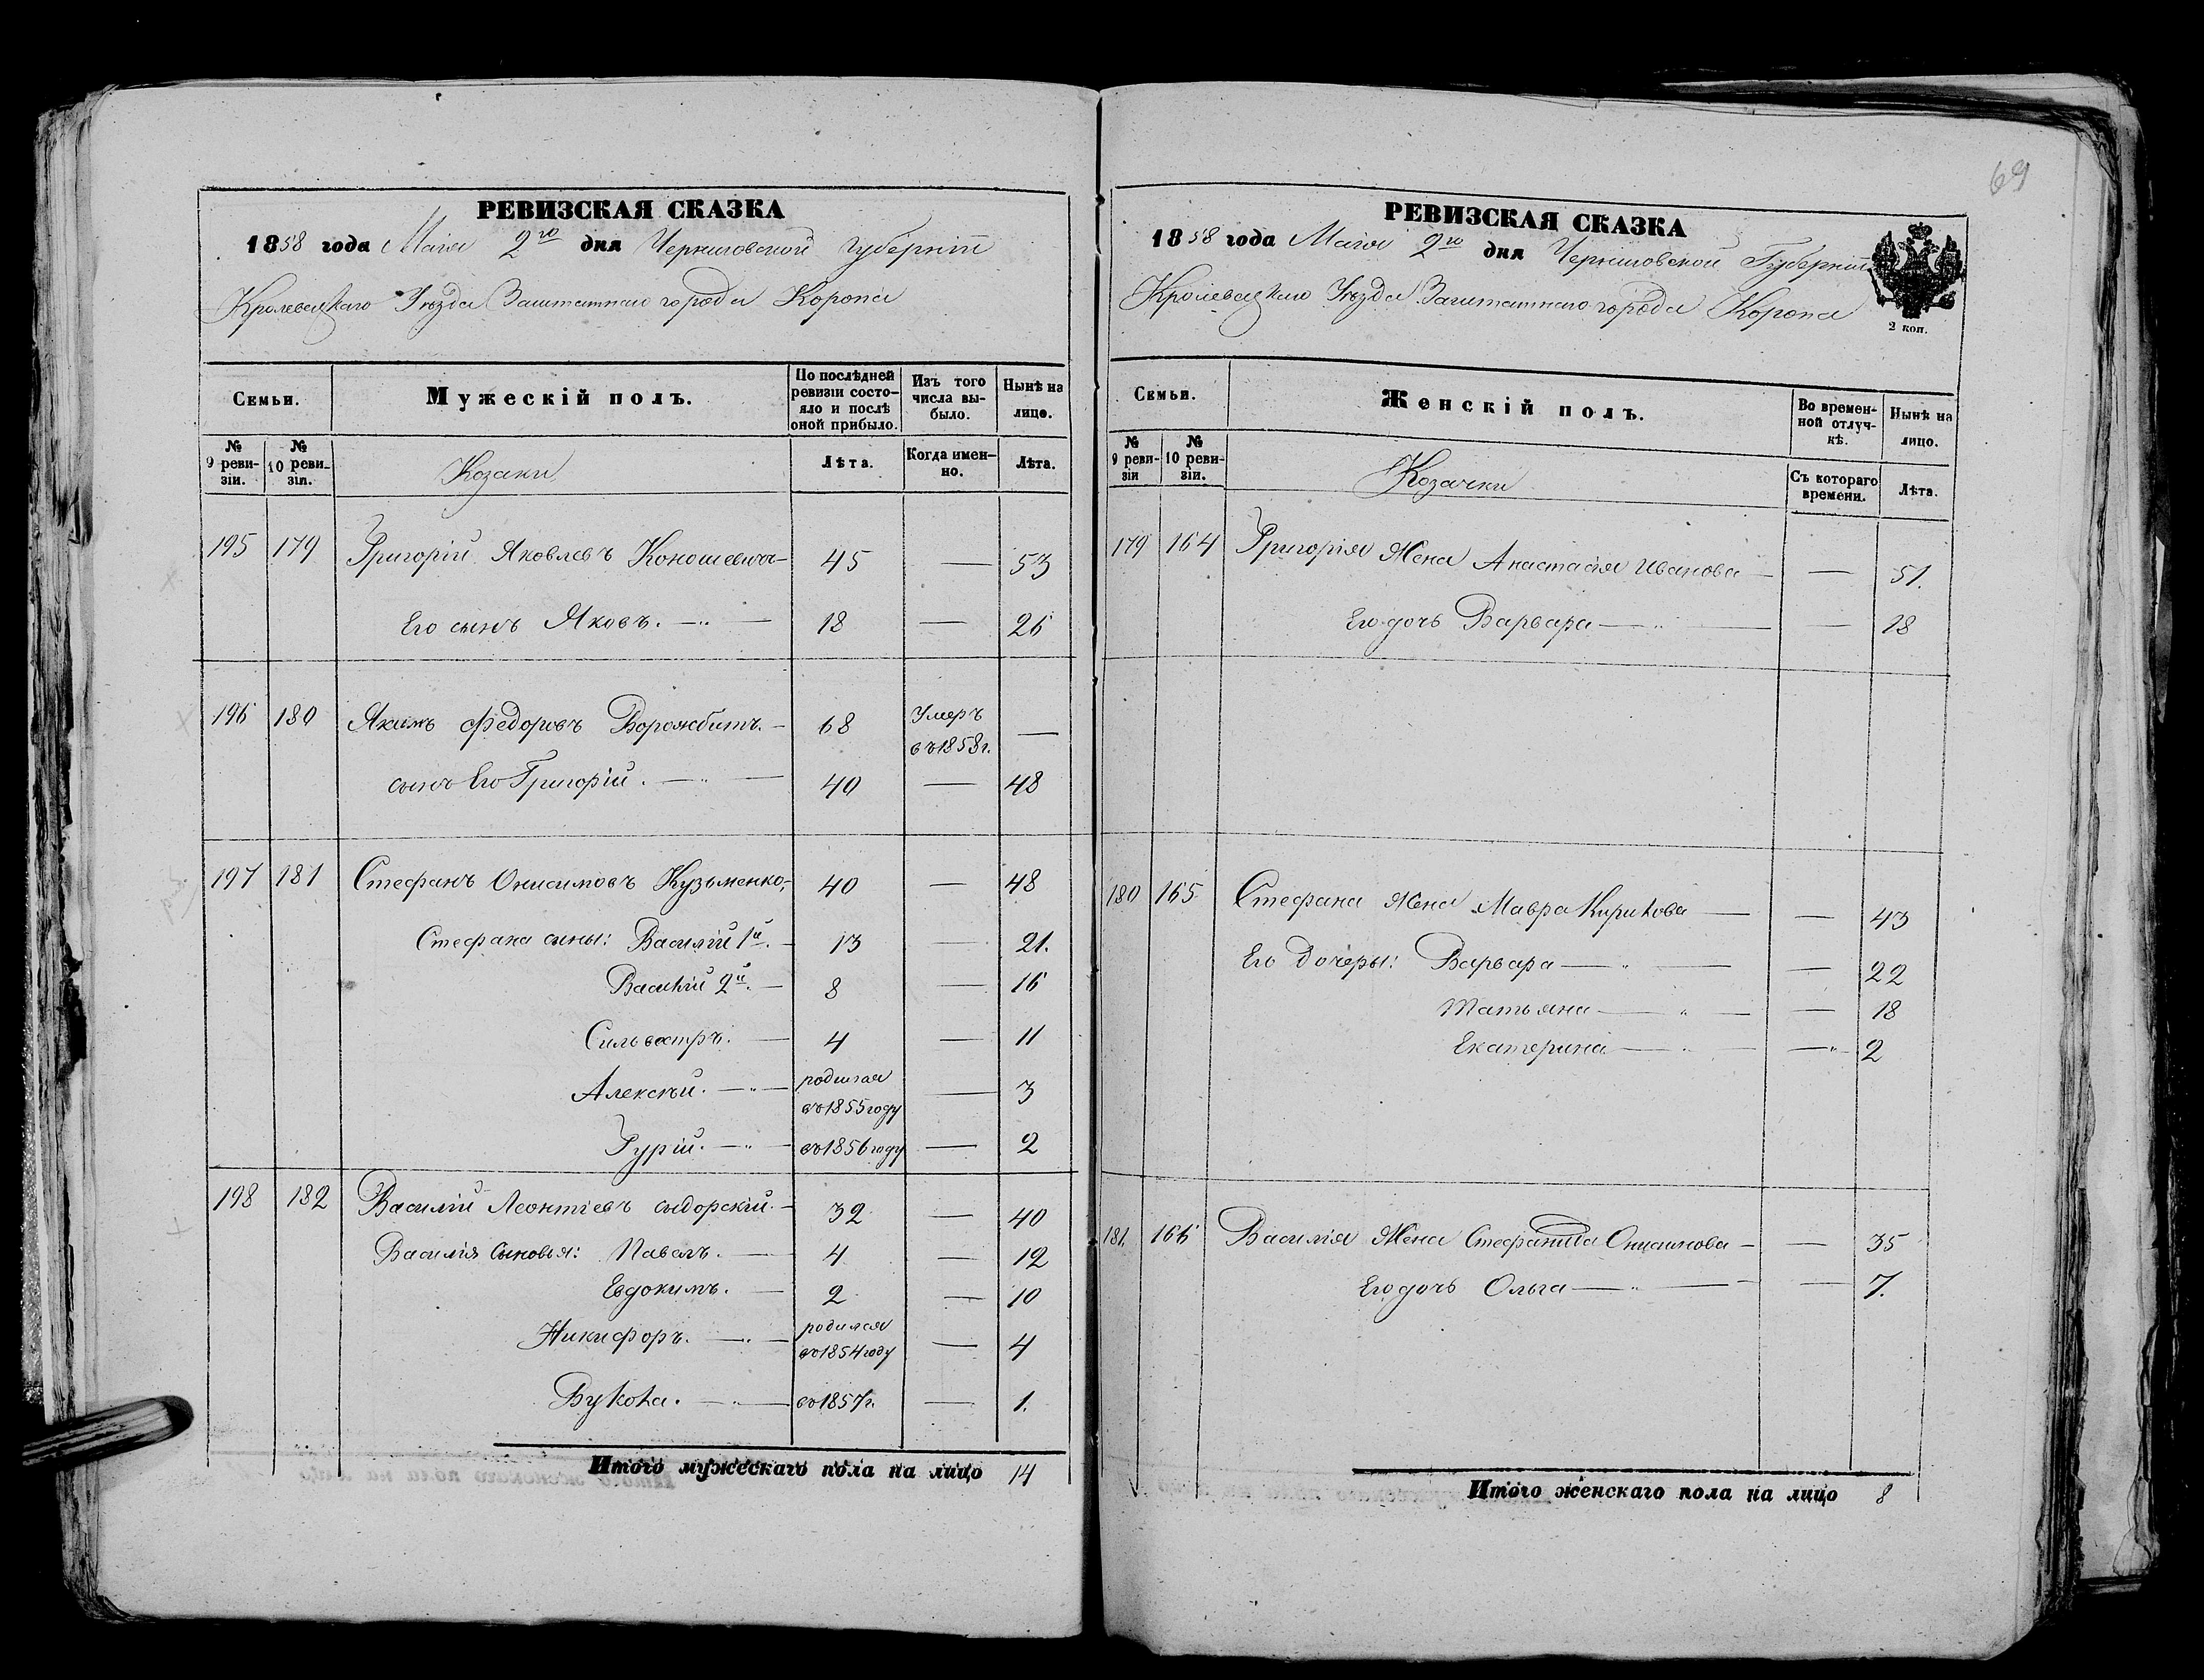 69
РЕВИЗСКАЯ СКАЗКА
1858 года Маія 2го дня Черниговской губерніи
Кролевецкаго Уѣзда Заштатнаго города Коропа
Семьи.
Мужескій полъ.
По послѣдней ревизіи состояло и послѣ оной прибыло.
Изъ того числа выбыло.
Нынѣ на лицо.
№ 9 ревизіи.
№ 10 ревизіи.
Козаки
Лѣта.
Когда именно.
Лѣта.
195 179 Григорій Яковлевъ Коношевич 45 — 53
Его сынъ Яковъ. — 18 — 26
196 180 Якимъ Федоровъ Ворожбитъ. — 68 Умеръ въ 1858 г. —
сынъ Его Григорій. — 40 — 48
197 181 Стефанъ Онисимовъ Кузьменко, 40 — 48
Стефана сыны: Василій 1й. — 13 — 21.
Василій 2й. — 8 — 16
Сильвестръ. — 4 — 11
Алексѣй. — родился въ 1855 году — 3
Гурій. — въ 1856 году — 2
198 182 Василій Леонтіевъ Сидорскій. — 32 — 40
Василія Сыновья: Павелъ. — 4 — 12
Евдокимъ. — 2 — 10
Никифоръ. — родился въ 1854 году — 4
Вукола. — въ 1857 г. — 1.
Итого мужескаго пола на лицо 14
РЕВИЗСКАЯ СКАЗКА
1858 года Маія 2го дня Черниговской Губерніи
Кролевецкаго Уѣзда Заштатнаго города Коропа
2 коп.
Семьи.
Женскій полъ.
Во временной отлучкѣ.
Нынѣ на лицо.
№ 9 ревизіи
№ 10 ревизіи.
Козачки
Съ котораго времени.
Лѣта.
179 164 Григорія Жена Анастасія Иванова — — 51.
Его дочь Варвара — — 18
180 165 Стефана Жена Мавра Кирикова — — 43
Его дочеры: Варвара — — 22
Татьяна — — 18
Екатерина — — 2
181. 166 Василія Жена Стефанида Онисимова — — 35
Его дочь Ольга — — 7.
Итого женскаго пола на лицо 8